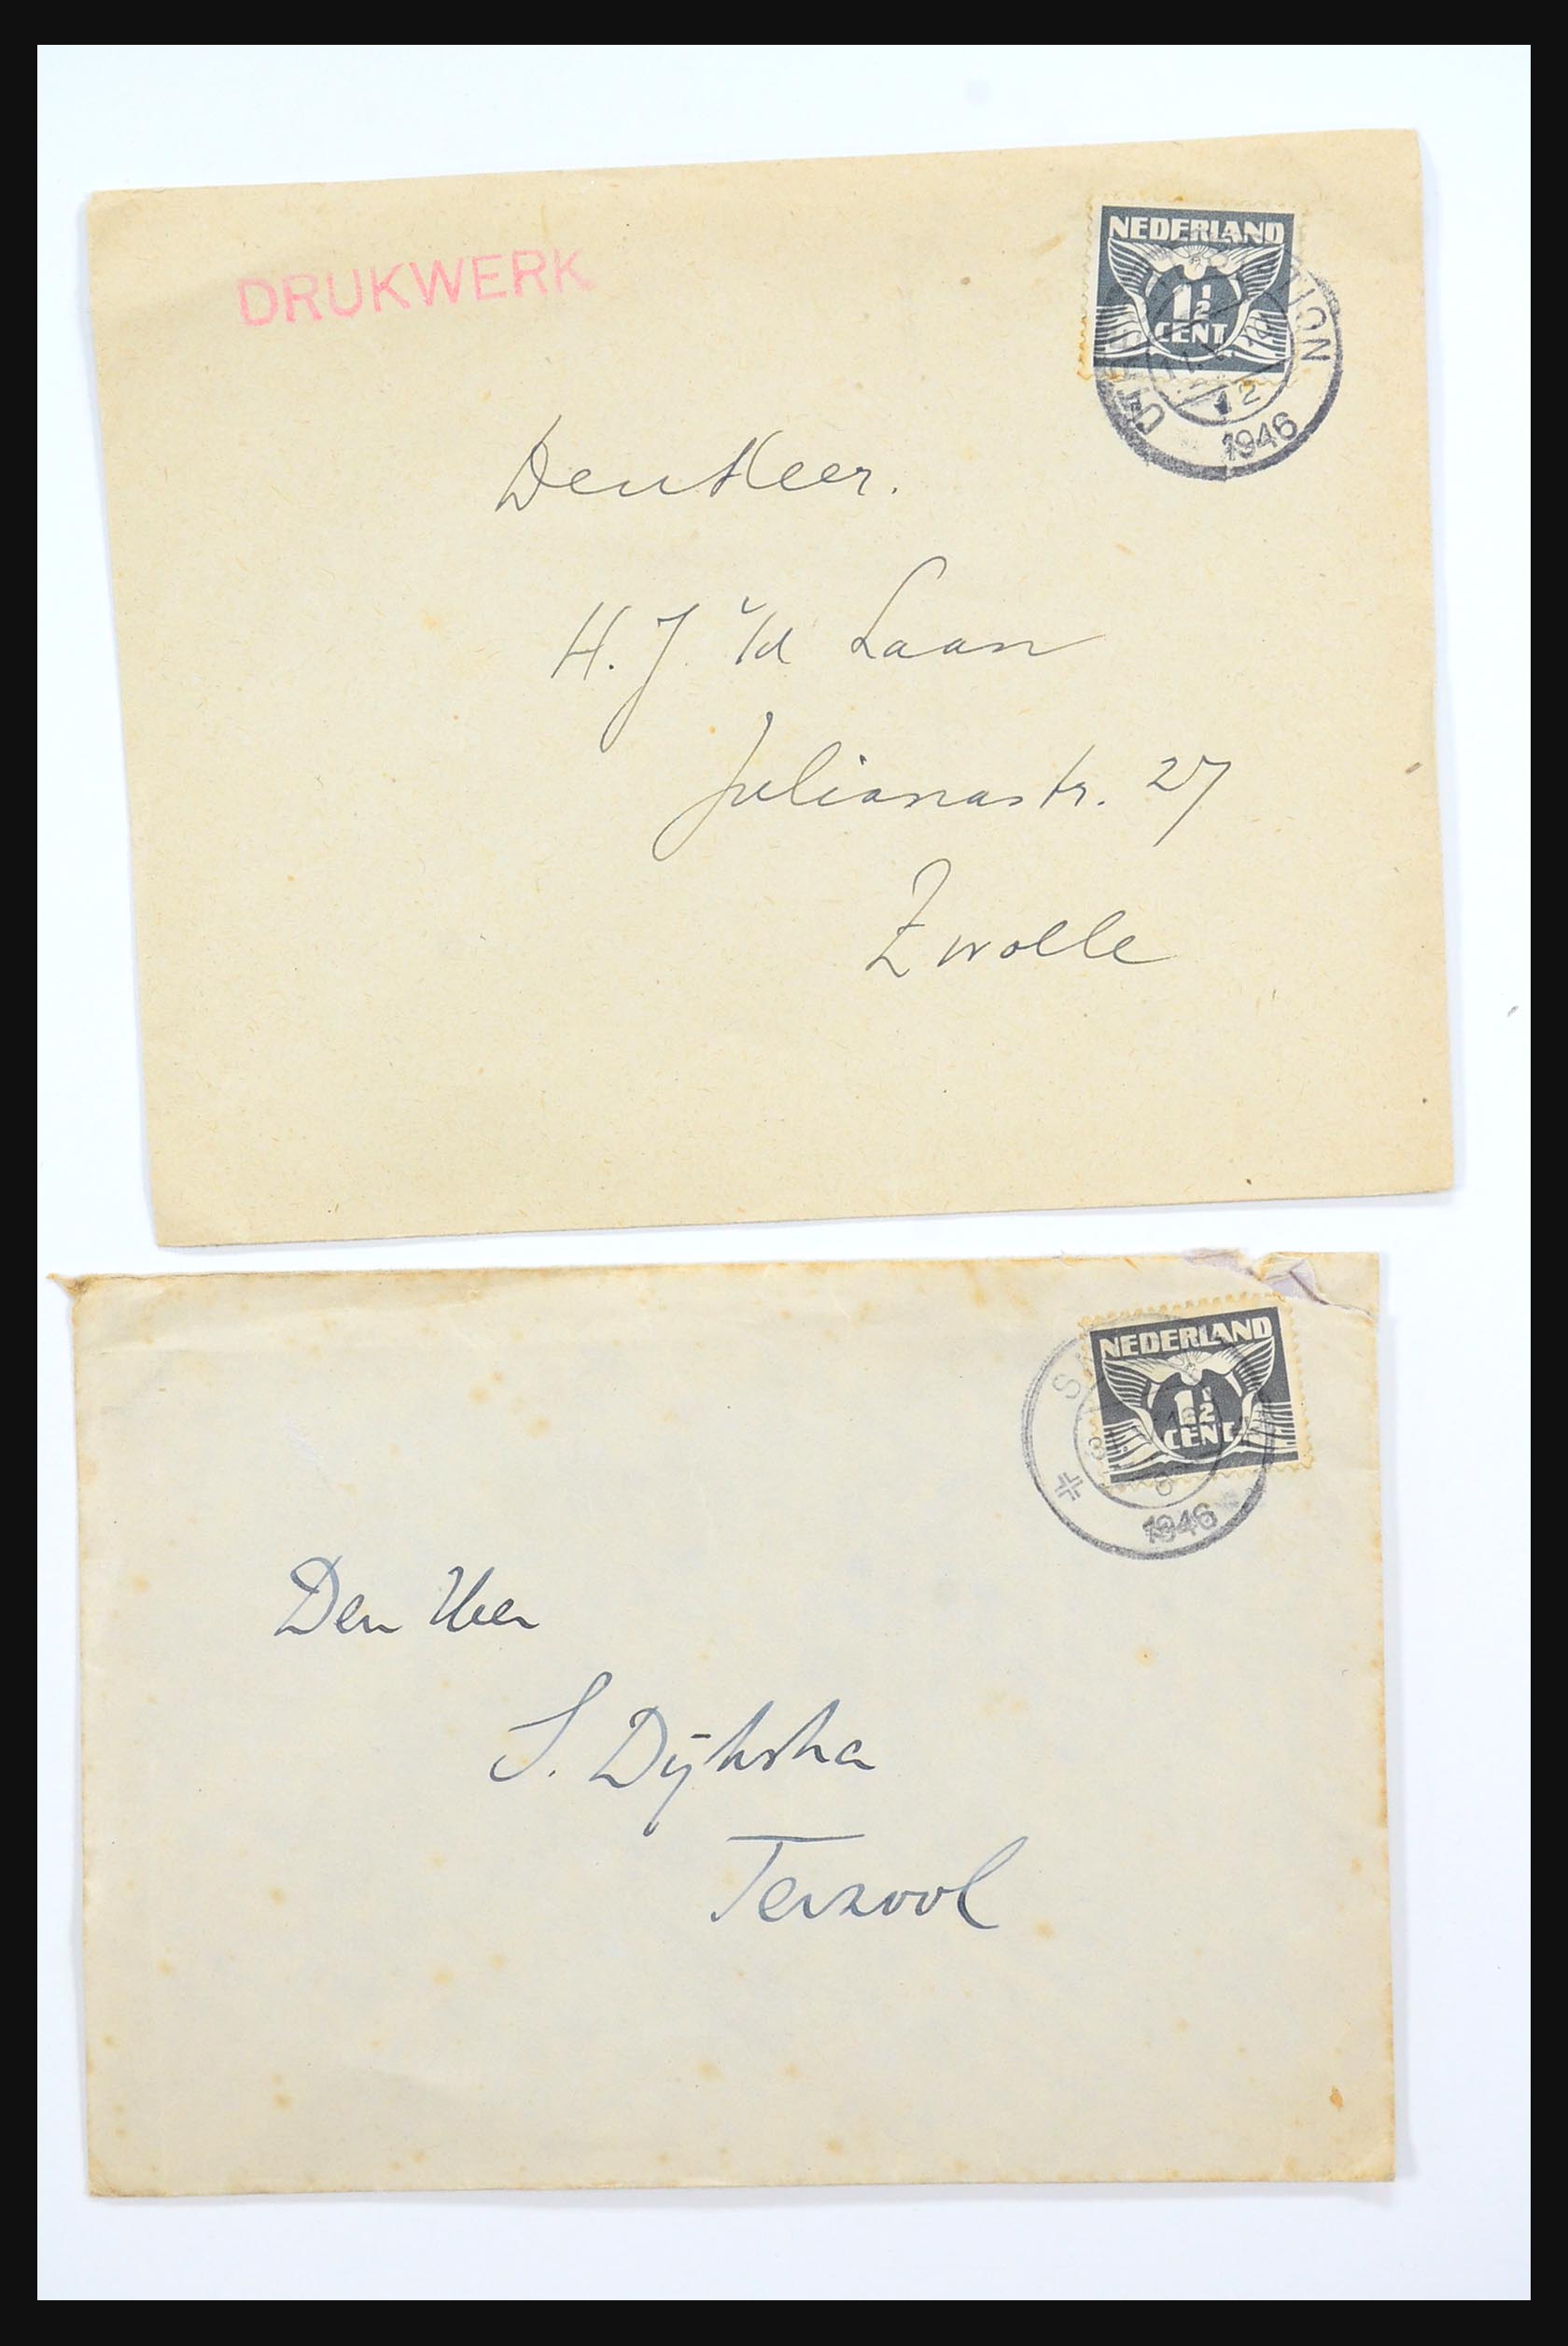 DRUKWERK
NEDERLAND
1½
CENT
12
1946
Den Heer.
H. J. v/d Laan
Julianastr. 27
Zwolle
NEDERLAND
1½
CENT
1946
Den Heer
S. Dijkstra
Terzool